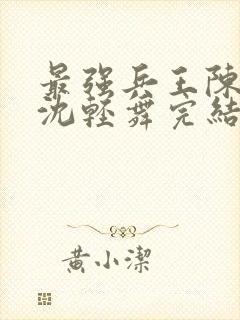 最强兵王陈
沈轻舞完结
黄小洁